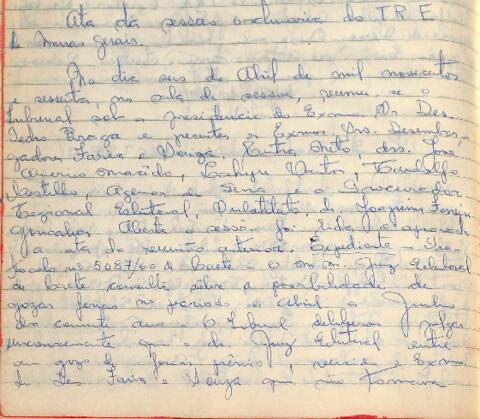 Ata da sessão ordinária do T R E
de Minas Gerais.
No dia seis de Abril de mil novecentos
e sessenta, na sala de sessões, reuniu-se o
Tribunal sob a presidência do Exmo Dr. Des.
Pedro Braga e presentes os Exmos. Srs. Desembar-
gadores Faria e Souza, Dutra, drs. José
Américo Macêdo, Santos,
Castilho, Agenor de Sena e o Procurador
Regional Eleitoral, Substituto, dr. Joaquim Ferreira
Gonçalves. Aberta a sessão foi lida e aprovada
a ata da reunião anterior. Expediente - Pro-
tocolo nº 5087/60 de Caeté - O Juiz Eleitoral
de Caeté consulta sôbre a possibilidade de
gozar ferias no período de abril a Junho
do corrente ano - O Tribunal deliberou julgar
que o dr. Juiz Eleitoral entre
em gozo de ferias prêmio, o Exmo
dr. Des Faria e Souza que não tomara